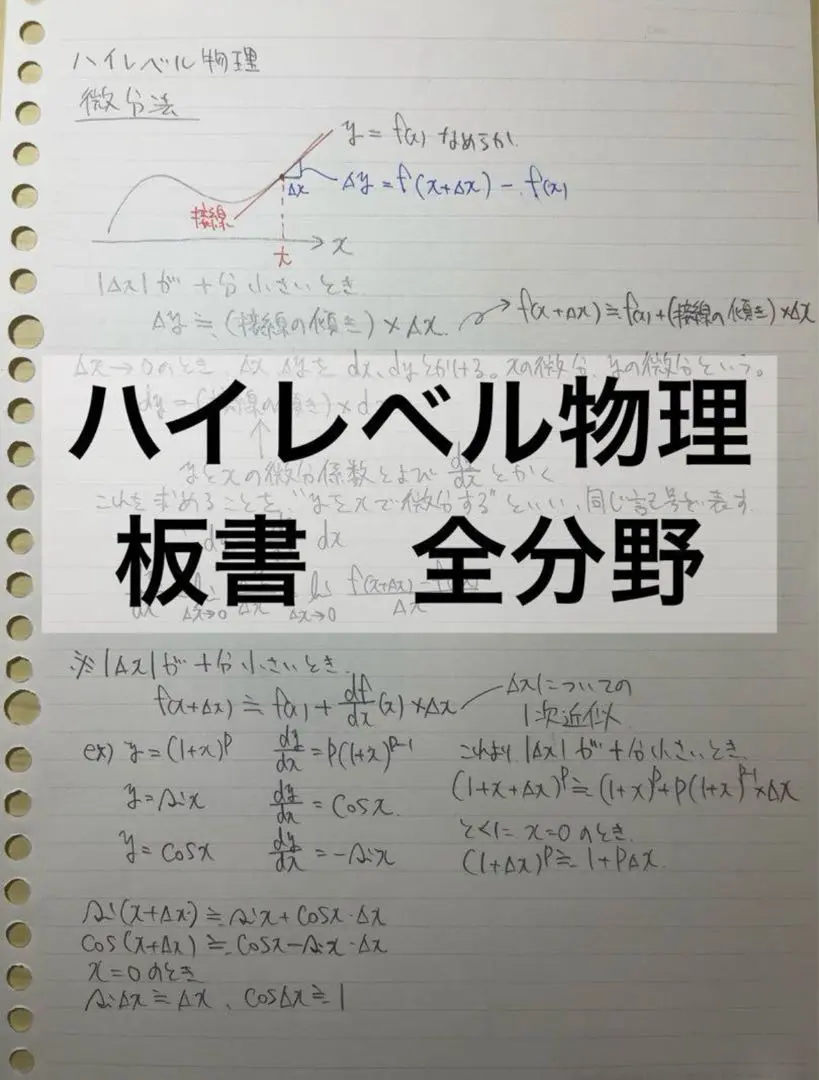 ハイレベル物理
微分法
y = f(x) なめらか
Δx
Δy = f(x+Δx) - f(x)
接線
x
|Δx| が十分小さいとき
Δy ≒ (接線の傾き) × Δx → f(x+Δx) ≒ f(x) + (接線の傾き) × Δx
Δx→0のとき Δx, Δyを dx, dyとかける。xの微分, yの微分という。
dy = (接線の傾き) × d
ハイレベル物理
yとxの微分係数とよび dy/dx とかく
これを求めることを、"yをxで微分する"といい、同じ記号で表す
板書 全分野
dx
Δx→0 Δx Δx→0 f(x+Δx) - f / Δx
※ |Δx| が十分小さいとき
f(x+Δx) ≒ f(x) + df/dx (x) × Δx
Δxについての
1次近似
ex) y = (1+x)^p dy/dx = p(1+x)^(p-1)
y = sin x dy/dx = cos x
y = cos x dy/dx = -sin x
これより |Δx| が十分小さいとき
(1+x+Δx)^p ≒ (1+x)^p + p(1+x)^(p-1) × Δx
とくに x=0 のとき
(1+Δx)^p ≒ 1+pΔx
sin(x+Δx) ≒ sin x + cos x・Δx
cos(x+Δx) ≒ cos x - sin x・Δx
x=0 のとき
sinΔx ≒ Δx、cosΔx ≒ 1